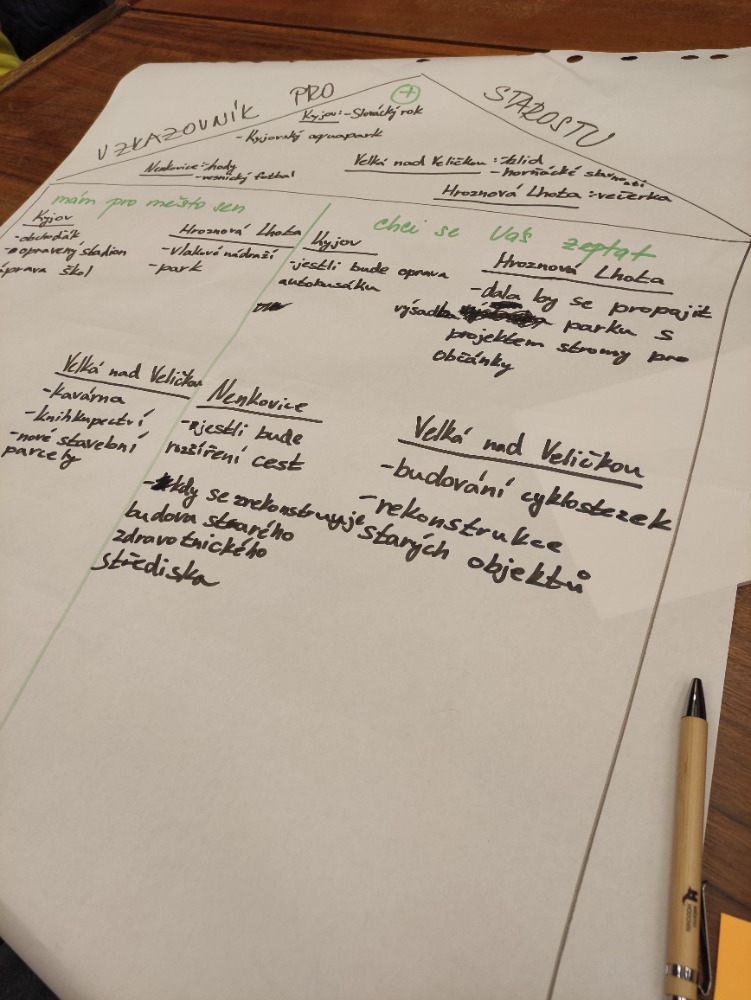 VZKAZOVNÍK PRO STAROSTU
+
Kyjov: - Slovácký rok
- Kyjovský aquapark
Nenkovice: - hody
- vesnický futbal
Velká nad Veličkou: - klid
- horňácké slavnosti
Hroznová Lhota: - večerka
mám pro město sen
Kyjov
- obchoďák
- opravený stadion
úprava škol
Hroznová Lhota
- vlakové nádraží
- park
Velká nad Veličkou
- kavárna
- knihkupectví
- nové stavební
parcely
chci se Vás zeptat
Kyjov
- jestli bude oprava
autobusáku
Hroznová Lhota
- dala by se propojit
výsadba parku s
projektem stromy pro
občánky
Nenkovice
- jestli bude
rozšíření cest
- kdy se zrekonstruuje
budova starého
zdravotnického
střediska
Velká nad Veličkou
- budování cyklostezek
- rekonstrukce
starých objektů